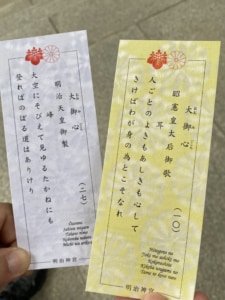 大御心
明治天皇御製
峰
大空にそびえて見ゆるたかねにも
登ればのぼる道はありけり
(二七)
Ōzorani
Sobiete miyuru
Takane nimo
Noboreba noboru
Michi wa arikeri
明治神宮
大御心
昭憲皇太后御歌
耳
人ごとのよきもあしきも心して
きけばわが身の為とこそなれ
(一〇)
Hitogoto no
Yoki mo ashiki mo
Kokoroshite
Kikeba wagami no
Tame to koso nare
明治神宮